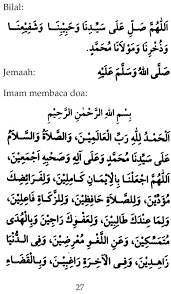 Bilal:
اَللّٰهُمَّ صَلِّ عَلَى سَيِّدِنَا وَحَبِيْبِنَا وَشَفِيْعِنَا
وَذُخْرِنَا وَمَوْلَانَا مُحَمَّدٍ.
Jemaah:
صَلَّى اللهُ وَسَلَّمَ عَلَيْهِ
Imam membaca doa:
بِسْمِ اللهِ الرَّحْمٰنِ الرَّحِيْمِ
اَلْحَمْدُ لِلّٰهِ رَبِّ الْعَالَمِيْنَ، وَالصَّلَاةُ وَالسَّلَامُ
عَلَى سَيِّدِنَا مُحَمَّدٍ وَعَلَى آلِهِ وَصَحْبِهِ أَجْمَعِيْنَ،
اَللّٰهُمَّ اجْعَلْنَا بِالْإِيْمَانِ كَامِلِيْنَ، وَلِفَرَائِضِكَ
مُؤَدِّيْنَ، وَلِلصَّلَاةِ حَافِظِيْنَ، وَلِلزَّكَاةِ فَاعِلِيْنَ،
وَلِمَا عِنْدَكَ طَالِبِيْنَ، وَلِعَفْوِكَ رَاجِيْنَ، وَبِالْهُدَى
مُتَمَسِّكِيْنَ، وَعَنِ اللَّغْوِ مُعْرِضِيْنَ، وَفِى الدُّنْيَا
زَاهِدِيْنَ، وَفِى الْآخِرَةِ رَاغِبِيْنَ، وَبِالْقَضَاءِ
27